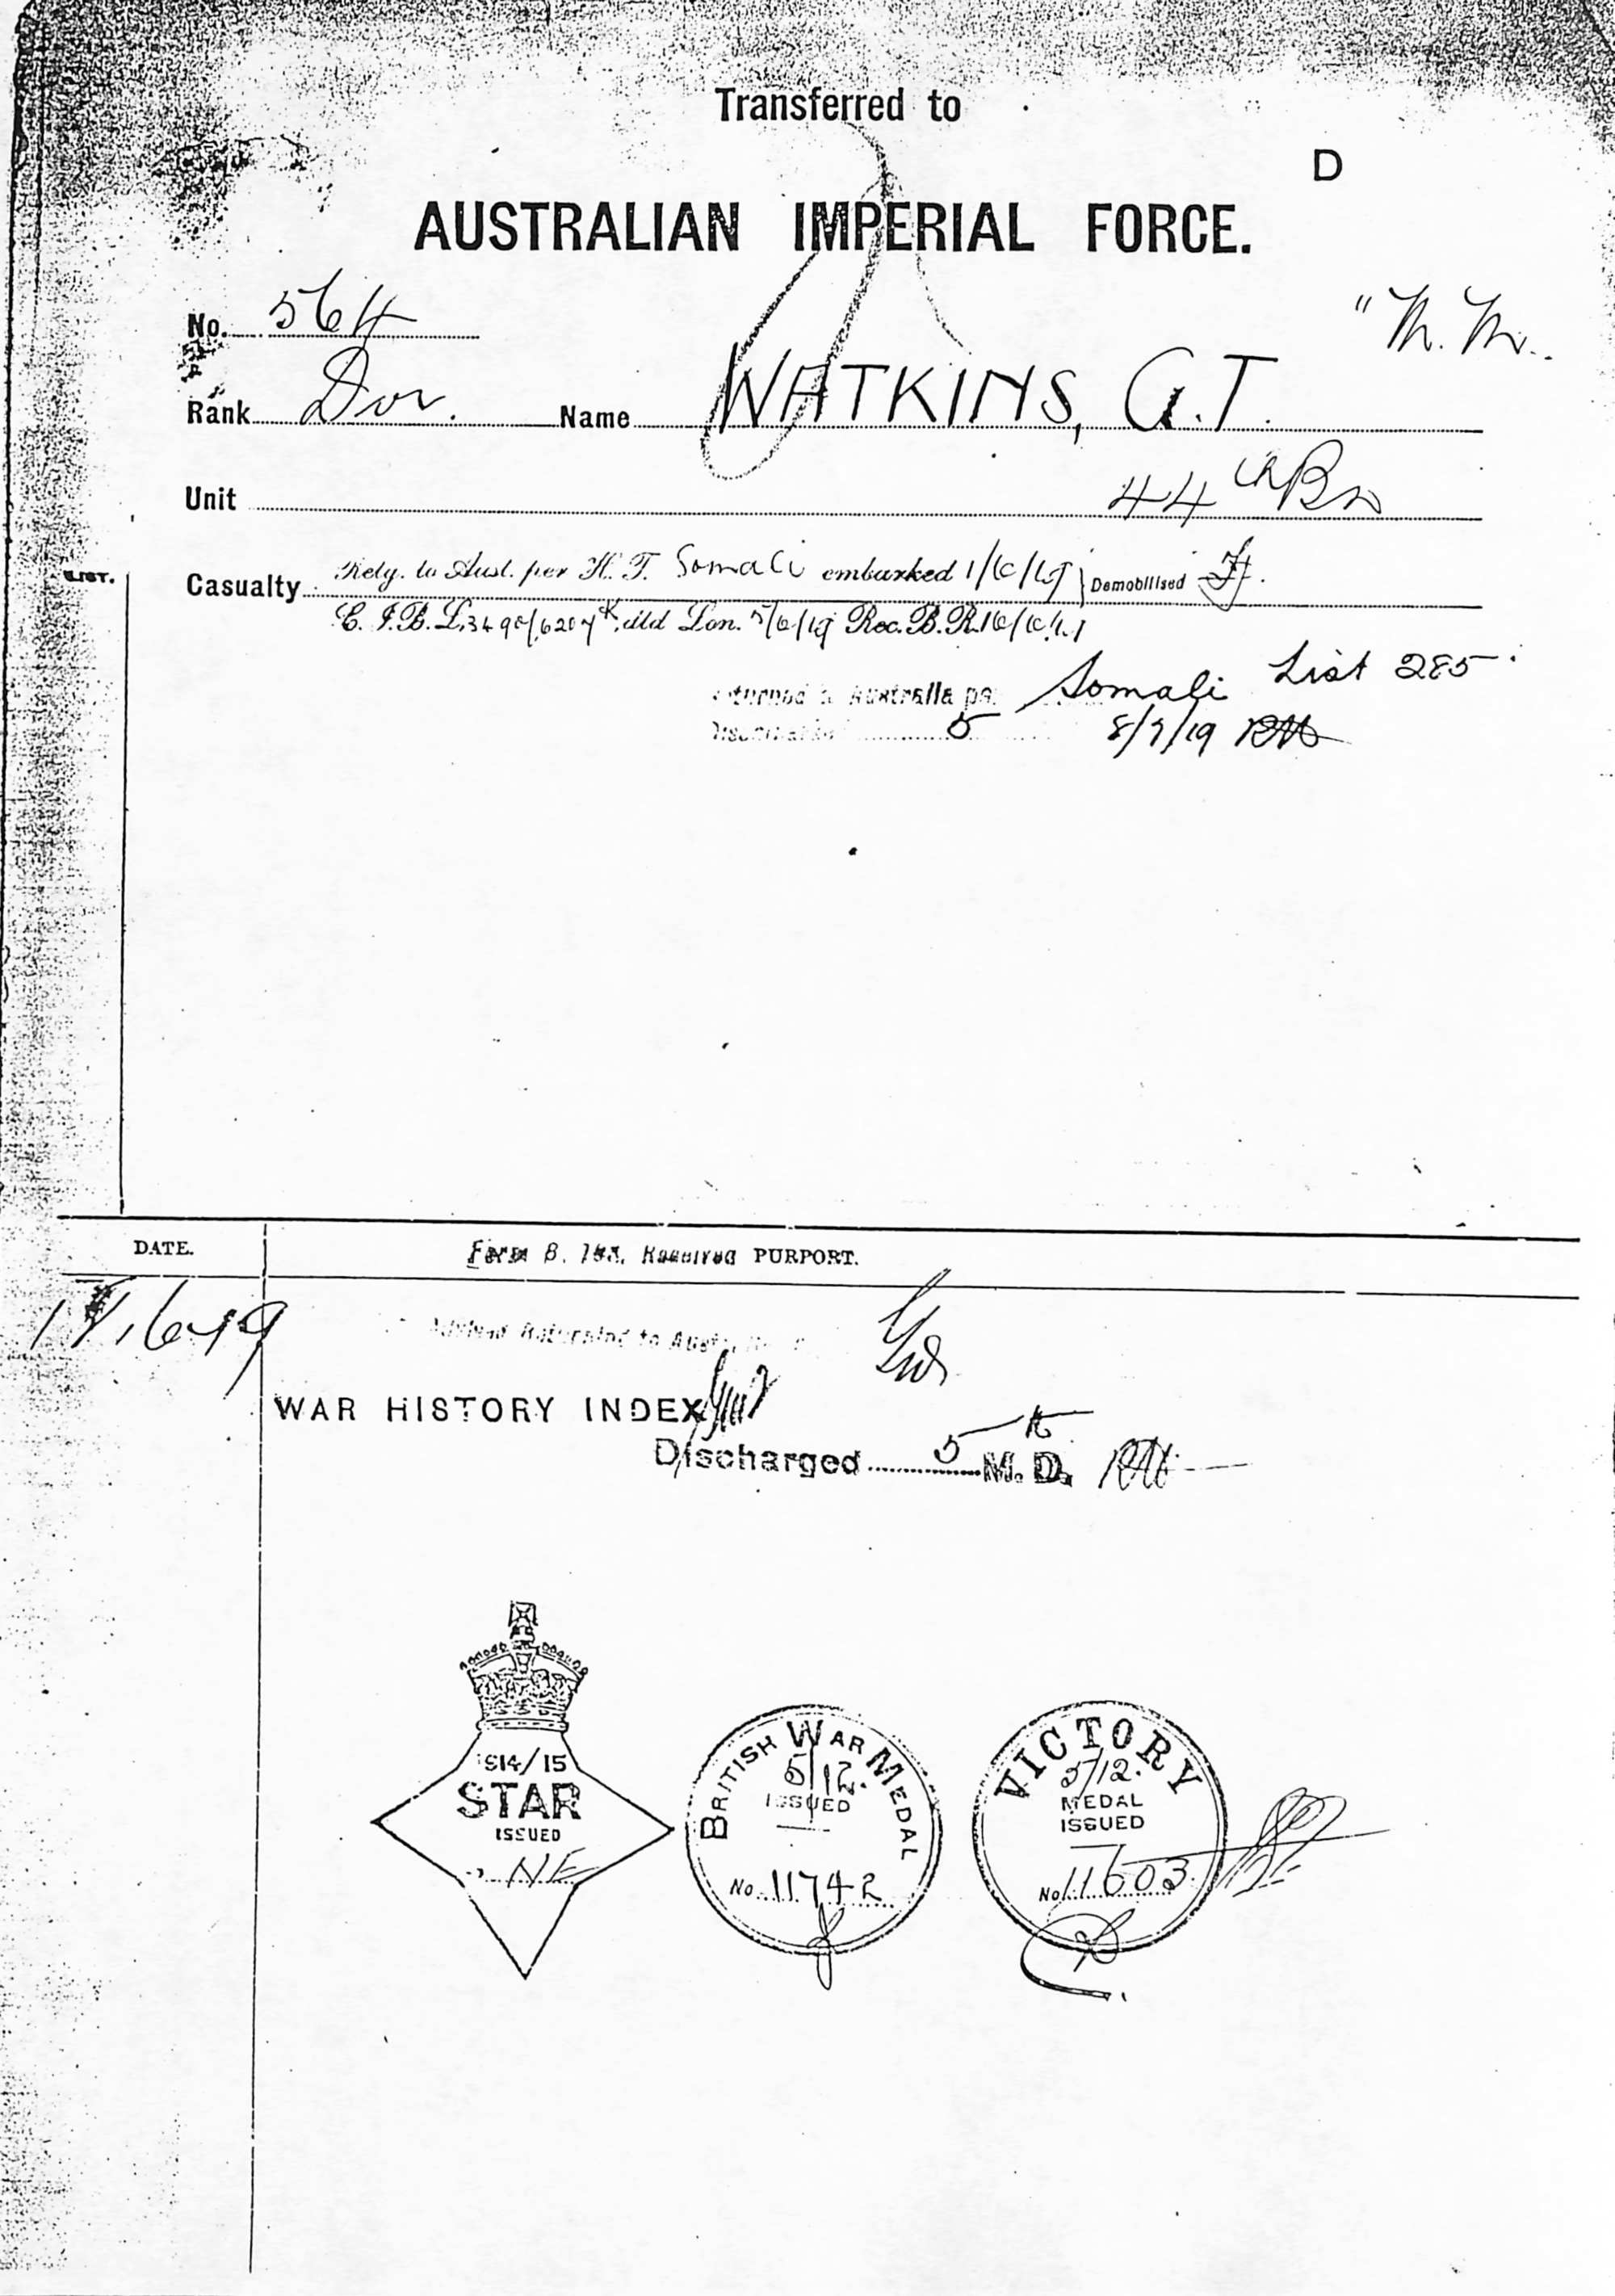 Transferred to
D
AUSTRALIAN IMPERIAL FORCE.
No. 564
"M.M.
Rank Dvr. Name WATKINS, G.T.
Unit 44th Bn
LIST.
Casualty Retg. to Aust. per H.T. Somali embarked 1/6/19 Demobilised
C.I.B.L. dtd Lon. 5/6/19 Rec. B.R.
Returned to Australia per Somali List 285
5 8/7/19
DATE. Form B. 103. Received PURPORT.
Advised Returning to Australia
WAR HISTORY INDEX
Discharged 5th M.D.
1914/15
STAR
ISSUED
NE
BRITISH WAR MEDAL
5/12.
ISSUED
No. 11742
VICTORY
5/12.
MEDAL
ISSUED
No. 11603